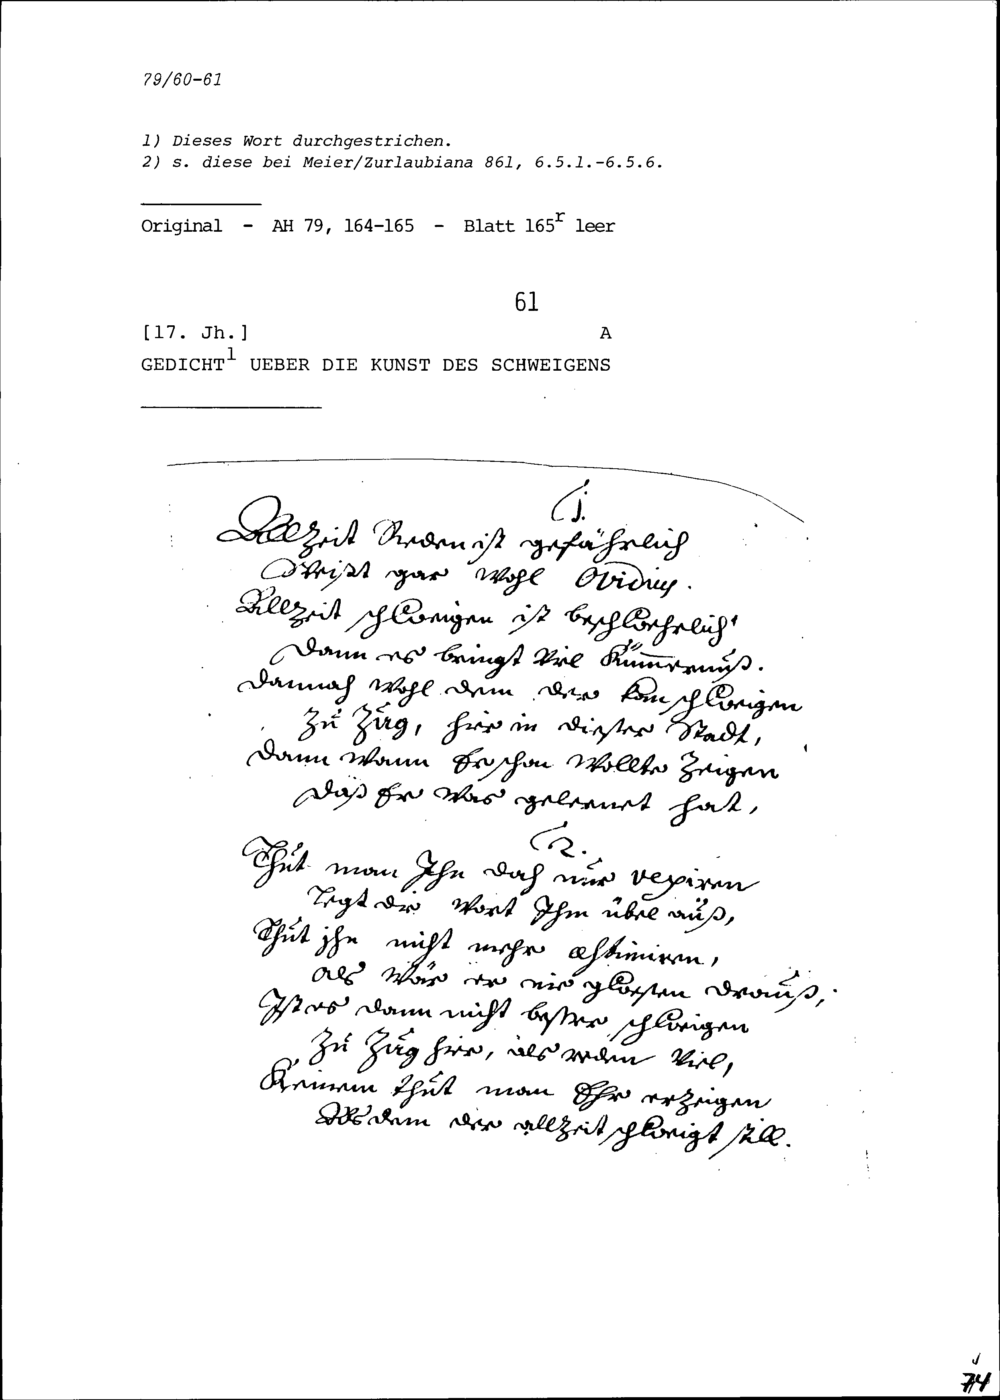 79/60-61
1) Dieses Wort durchgestrichen.
2) s. diese bei Meier/Zurlaubiana 861, 6.5.1.-6.5.6.
Original - AH 79, 164-165 - Blatt 165r leer
61
[17. Jh.] A
GEDICHT1 UEBER DIE KUNST DES SCHWEIGENS
1.
Allzeit Reden ist gefährlich
Weißt gar wohl Ovidius.
Allzeit schweigen ist beschwehrlich
Dann es bringt Viel Kümmernuß.
Dannoch Wohl dem der kan schweigen
Zu Zug, hier in dießer Stadt,
Dann wann Er schon wollte Zeigen
Daß Er was gelernet hat,
2.
Thut man Ihn doch nur vexiren
Legt die Wort Ihm übel auß,
Thut jhn nicht mehr æstimiren,
als wär er nie gwesen drauß,
Ist es dann nicht besser schweigen
Zu Zug hier, als reden Viel,
Keinem thut man Ehr erzeigen
Als dem der allzeit schweigt still.
74